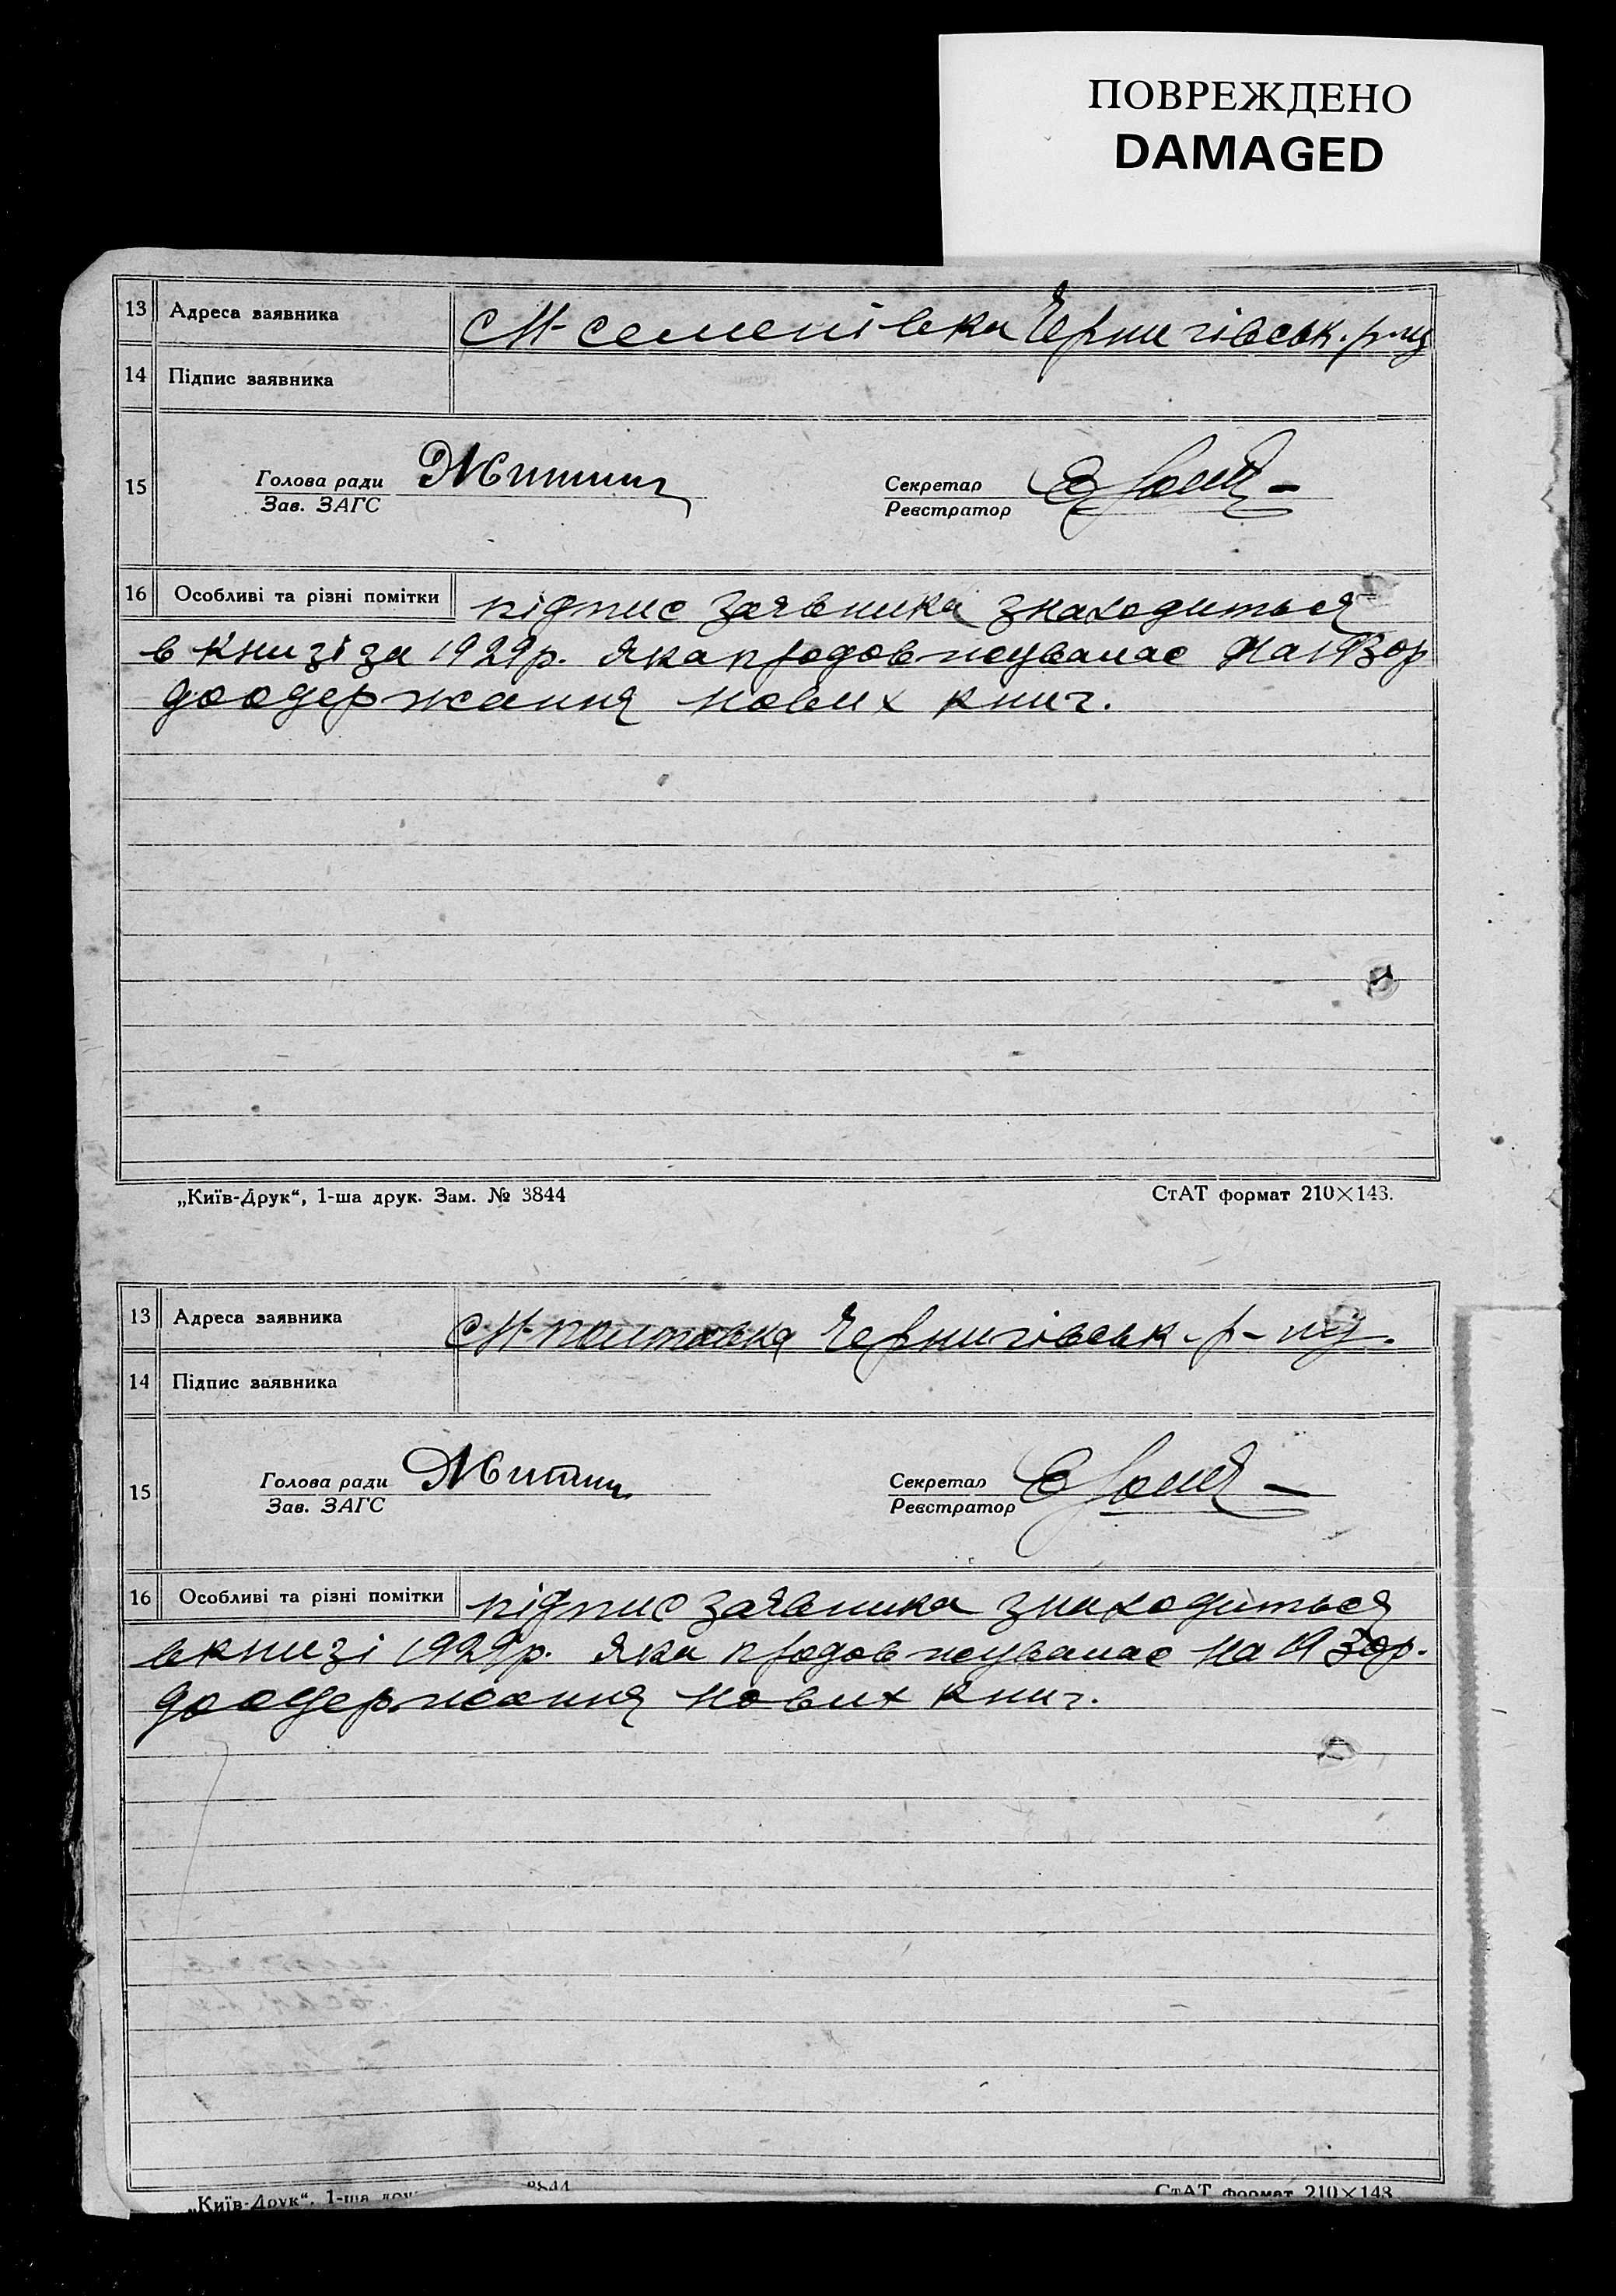 ПОВРЕЖДЕНО
DAMAGED
13 Адреса заявника с Н-семенівка Чернигівськ. р-ну
14 Підпис заявника
15 Голова ради Секретар
Зав. ЗАГС Реєстратор
16 Особливі та різні помітки підпис заявника знаходиться
в книзі за 1929р. яка продовжувалас на 1930р
до одержання нових книг.
„Київ-Друк“, 1-ша друк. Зам. № 3844 СтАТ формат 210×148.
13 Адреса заявника с Н-полтавка Чернигівськ. р-ну.
14 Підпис заявника
15 Голова ради Секретар
Зав. ЗАГС Реєстратор
16 Особливі та різні помітки підпис заявника знаходиться
в книзі 1929р. яка продовжувалас на 1930р.
до одержання нових книг.
„Київ-Друк“, 1-ша 3844 СтАТ формат 210×148